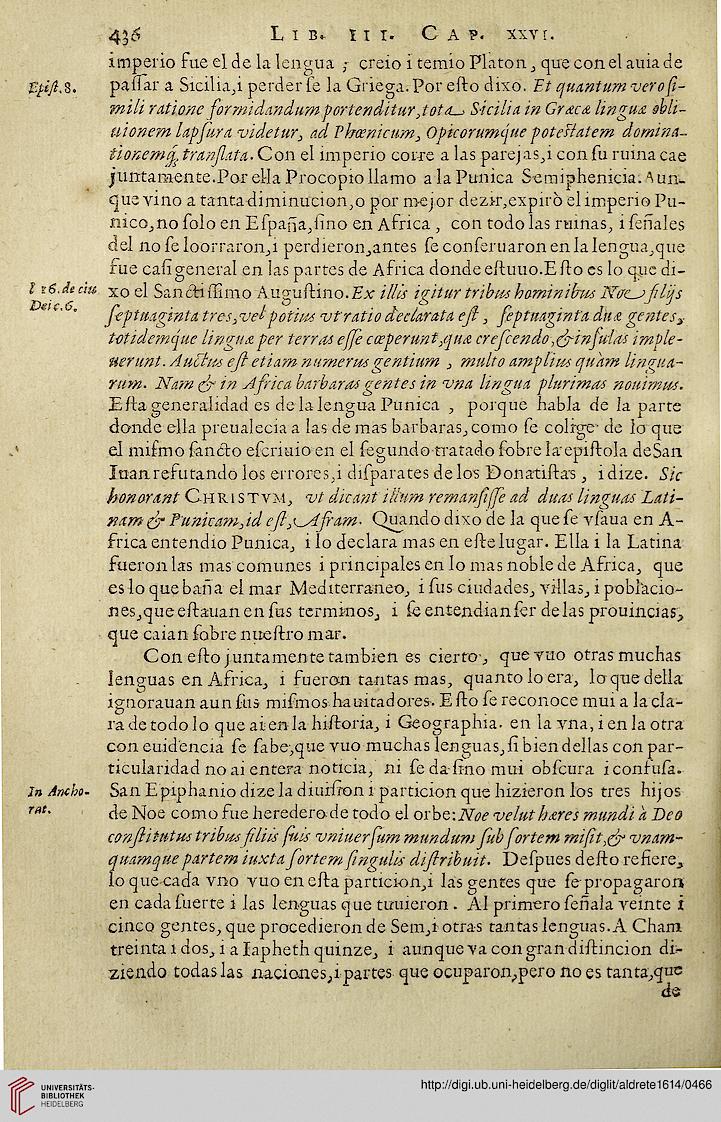 436 LIB. III. CAP. XXVI.
imperio fue el de la lengua ; creio i temio Platon, que con el auia de
Epiſt. 8.
paſſar a Sicilia,i perderſe la Griega. Por eſto dixo. Et quantum vero ſi-
mili ratione formidandum portenditur, tota Sicilia in Græcæ linguæ obli-
uionem lapſura videtur, ad Phœnicum, Opicorumque poteſtatem domina-
tionemq́; tranſlata. Con el imperio corre a las parejas,i con ſu ruina cae
juntamente. Por ella Procopio llamo a la Punica Semiphenicia. Aun-
que vino a tanta diminucion,o por mejor dezir,expirò el imperio Pu-
nico,no ſolo en Eſpaña,ſino en Africa , con todo las ruinas, i ſeñales
del no ſe loorraron,i perdieron,antes ſe conſeruaron en la lengua,que
fue caſi general en las partes de Africa donde eſtuuo. Eſto es lo que di-
l 16. de ciu.
Dei c. 6.
xo el Sanctiſſimo Auguſtino. Ex illis igitur tribus hominibus Noe filijs
ſeptuaginta tres, vel potius vt ratio declarata eſt , ſeptuaginta duæ gentes,
totidemque linguæ per terras eſſe cœperunt, quæ creſcendo, & inſulas imple-
uerunt. Auctus eſt etiam numerus gentium , multo amplius quàm lingua-
rum. Nam & in Africa barbaras gentes in vna lingua plurimas nouimus.
Eſta generalidad es de la lengua Punica , porque habla de la parte
donde ella preualecia a las de mas barbaras, como ſe colige de lo que
el miſmo ſancto eſcriuio en el ſegundo tratado ſobre la epiſtola de San
Iuan refutando los errores,i diſparates de los Donatiſtas , i dize. Sic
honorant CHRISTVM, vt dicant illum remanſiſſe ad duas linguas Lati-
nam & Punicam, id eſt, Afram. Quando dixo de la que ſe vſaua en A-
frica entendio Punica, i lo declara mas en eſte lugar. Ella i la Latina
fueron las mas comunes i principales en lo mas noble de Africa, que
es lo que baña el mar Mediterraneo, i ſus ciudades, villas, i poblacio-
nes,que eſtauan en ſus terminos, i ſe entendian ſer de las prouincias,
que caian ſobre nueſtro mar.
Con eſto juntamente tambien es cierto, que vuo otras muchas
lenguas en Africa, i fueron tantas mas, quanto lo era, lo que della
ignorauan aun ſus miſmos hauitadores. Eſto ſe reconoce mui a la cla-
ra de todo lo que ai en la hiſtoria, i Geographia. en la vna, i en la otra
con euidencia ſe ſabe,que vuo muchas lenguas,ſi bien dellas con par-
ticularidad no ai entera noticia, ni ſe da ſino mui obſcura i confuſa.
In Ancho-
rat.
San Epiphanio dize la diuiſion i particion que hizieron los tres hijos
de Noe como fue heredero de todo el orbe: Noe velut hæres mundi à Deo
conſtitutus tribus filiis ſuis vniuerſum mundum ſub ſortem miſit, & vnam-
quamque partem iuxta ſortem ſingulis diſtribuit. Deſpues deſto refiere,
lo que cada vno vuo en eſta particion,i las gentes que ſe propagaron
en cada ſuerte i las lenguas que tuuieron . Al primero ſeñala veinte i
cinco gentes, que procedieron de Sem,i otras tantas lenguas. A Cham
treinta i dos, i a Iapheth quinze, i aunque va con gran diſtincion di-
ziendo todas las naciones,i partes que ocuparon,pero no es tanta,que
de
UNIVERSITÄTS-
BIBLIOTHEK
HEIDELBERG
http://digi.ub.uni-heidelberg.de/diglit/aldrete1614/0466